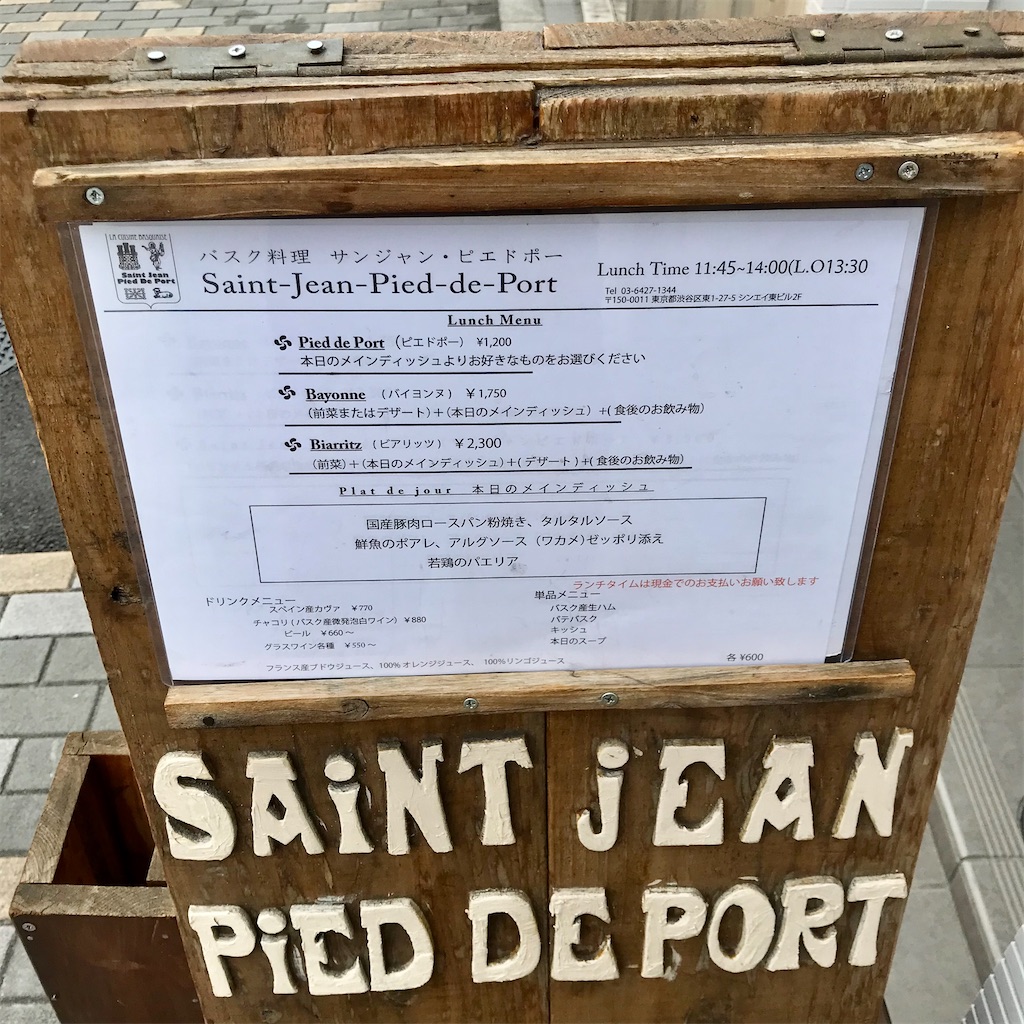 LA CUISINE BASQUAISE
Saint Jean
Pied De Port
バスク料理 サンジャン・ピエドポー
Saint-Jean-Pied-de-Port
Lunch Time 11:45~14:00(L.O13:30
Tel 03-6427-1344
〒150-0011 東京都渋谷区東1-27-5 シンエイ東ビル2F
Lunch Menu
Pied de Port (ピエドポー) ¥1,200
本日のメインディッシュよりお好きなものをお選びください
Bayonne (バイヨンヌ) ¥1,750
(前菜またはデザート)+(本日のメインディッシュ) +(食後のお飲み物)
Biarritz (ビアリッツ) ¥2,300
(前菜)+(本日のメインディッシュ)+(デザート)+(食後のお飲み物)
Plat de jour 本日のメインディッシュ
国産豚肉ロースパン粉焼き、タルタルソース
鮮魚のポアレ、アルグソース (ワカメ)ゼッポリ添え
若鶏のパエリア
ランチタイムは現金でのお支払いお願い致します
ドリンクメニュー
スペイン産カヴァ ¥770
チャコリ(バスク産微発泡白ワイン) ¥880
ビール ¥660～
グラスワイン各種 ¥550～
フランス産ブドウジュース、100%オレンジジュース、 100%リンゴジュース
単品メニュー
バスク産生ハム
パテバスク
キッシュ
本日のスープ
各¥600
SAiNT jEAN
PiED DE PORT